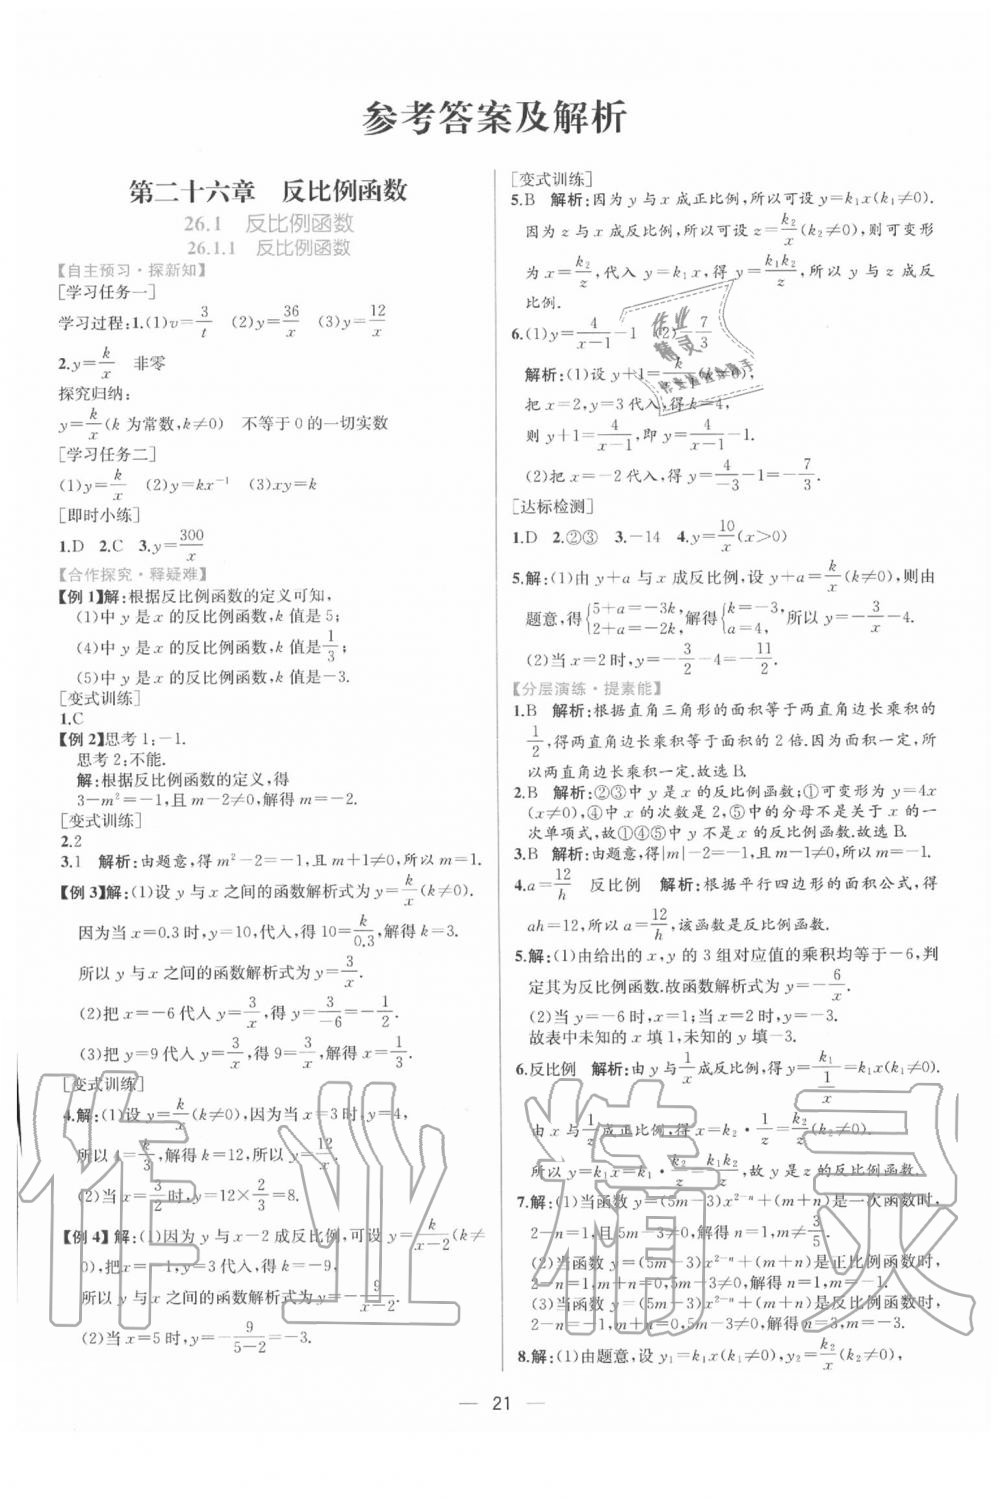 参考答案及解析
第二十六章 反比例函数
26.1 反比例函数
26.1.1 反比例函数
【自主预习·探新知】
[学习任务一]
学习过程:1.(1)v=3/t (2)y=36/x (3)y=12/x
2.y=k/x 非零
探究归纳:
y=k/x(k 为常数,k≠0) 不等于0的一切实数
[学习任务二]
(1)y=k/x (2)y=kx⁻¹ (3)xy=k
[即时小练]
1.D 2.C 3.y=300/x
【合作探究·释疑难】
【例1】解:根据反比例函数的定义可知,
(1)中 y 是 x 的反比例函数,k 值是5;
(4)中 y 是 x 的反比例函数,k 值是1/3;
(5)中 y 是 x 的反比例函数,k 值是-3.
[变式训练]
1.C
【例2】思考1:-1.
思考2:不能.
解:根据反比例函数的定义,得
3-m²=-1,且 m-2≠0,解得 m=-2.
[变式训练]
2.2
3.1 解析:由题意,得 m²-2=-1,且 m+1≠0,所以 m=1.
【例3】解:(1)设 y 与 x 之间的函数解析式为 y=k/x(k≠0).
因为当 x=0.3时,y=10,代入,得10=k/0.3,解得 k=3.
所以 y 与 x 之间的函数解析式为 y=3/x.
(2)把 x=-6代入 y=3/x,得 y=3/-6=-1/2.
(3)把 y=9代入 y=3/x,得9=3/x,解得 x=1/3.
[变式训练]
4.解:(1)设 y=k/x(k≠0),因为当 x=3时,y=4,
所以4=k/3,解得 k=12,所以 y=12/x.
(2)当 x=3/2时,y=12×2/3=8.
【例4】解:(1)因为 y 与 x-2成反比例,可设 y=k/(x-2)(k≠
0),把 x=-1,y=3代入,得 k=-9,
所以 y 与 x 之间的函数解析式为 y=-9/(x-2).
(2)当 x=5时,y=-9/(5-2)=-3.
[变式训练]
5.B 解析:因为 y 与 x 成正比例,所以可设 y=k₁x(k₁≠0).
因为 z 与 x 成反比例,所以可设 z=k₂/x(k₂≠0),则可变形
为 x=k₂/z,代入 y=k₁x,得 y=k₁k₂/z,所以 y 与 z 成反
比例.
6.(1)y=4/(x-1)-1 (2)-7/3
解析:(1)设 y+1=k/(x-1)(k≠0),
把 x=2,y=3代入,得 k=4,
则 y+1=4/(x-1),即 y=4/(x-1)-1.
(2)把 x=-2代入,得 y=4/-3-1=-7/3.
[达标检测]
1.D 2.②③ 3.-14 4.y=10/x(x>0)
5.解:(1)由 y+a 与 x 成反比例,设 y+a=k/x(k≠0),则由
题意,得{5+a=-3k, 2+a=-2k,解得{k=-3, a=4,所以 y=-3/x-4.
(2)当 x=2时,y=-3/2-4=-11/2.
【分层演练·提素能】
1.B 解析:根据直角三角形的面积等于两直角边长乘积的
1/2,得两直角边长乘积等于面积的2倍.因为面积一定,所
以两直角边长乘积一定.故选B.
2.B 解析:②③中 y 是 x 的反比例函数;①可变形为 y=4x
(x≠0),④中 x 的次数是2,⑤中的分母不是关于 x 的一
次单项式,故①④⑤中 y 不是 x 的反比例函数.故选B.
3.B 解析:由题意,得|m|-2=-1,且 m-1≠0,所以 m=-1.
4.a=12/h 反比例 解析:根据平行四边形的面积公式,得
ah=12,所以 a=12/h,该函数是反比例函数.
5.解:(1)由给出的 x,y 的3组对应值的乘积均等于-6,判
定其为反比例函数.故函数解析式为 y=-6/x.
(2)当 y=-6时,x=1;当 x=2时,y=-3.
故表中未知的 x 填1,未知的 y 填-3.
6.反比例 解析:由 y 与1/x成反比例,得 y=k₁/(1/x)=k₁x(k₁≠0).
由 x 与1/z成正比例,得 x=k₂·1/z=k₂/z(k₂≠0).
所以 y=k₁x=k₁·k₂/z=k₁k₂/z,故 y 是 z 的反比例函数.
7.解:(1)当函数 y=(5m-3)x²⁻ⁿ+(m+n)是一次函数时,
2-n=1,且5m-3≠0,解得 n=1,m≠3/5.
(2)当函数 y=(5m-3)x²⁻ⁿ+(m+n)是正比例函数时,
2-n=1,m+n=0,5m-3≠0,解得 n=1,m=-1.
(3)当函数 y=(5m-3)x²⁻ⁿ+(m+n)是反比例函数时,
2-n=-1,m+n=0,5m-3≠0,解得 n=3,m=-3.
8.解:(1)由题意,设 y₁=k₁x(k₁≠0),y₂=k₂/x(k₂≠0),
— 21 —
作业精灵
作业
精灵